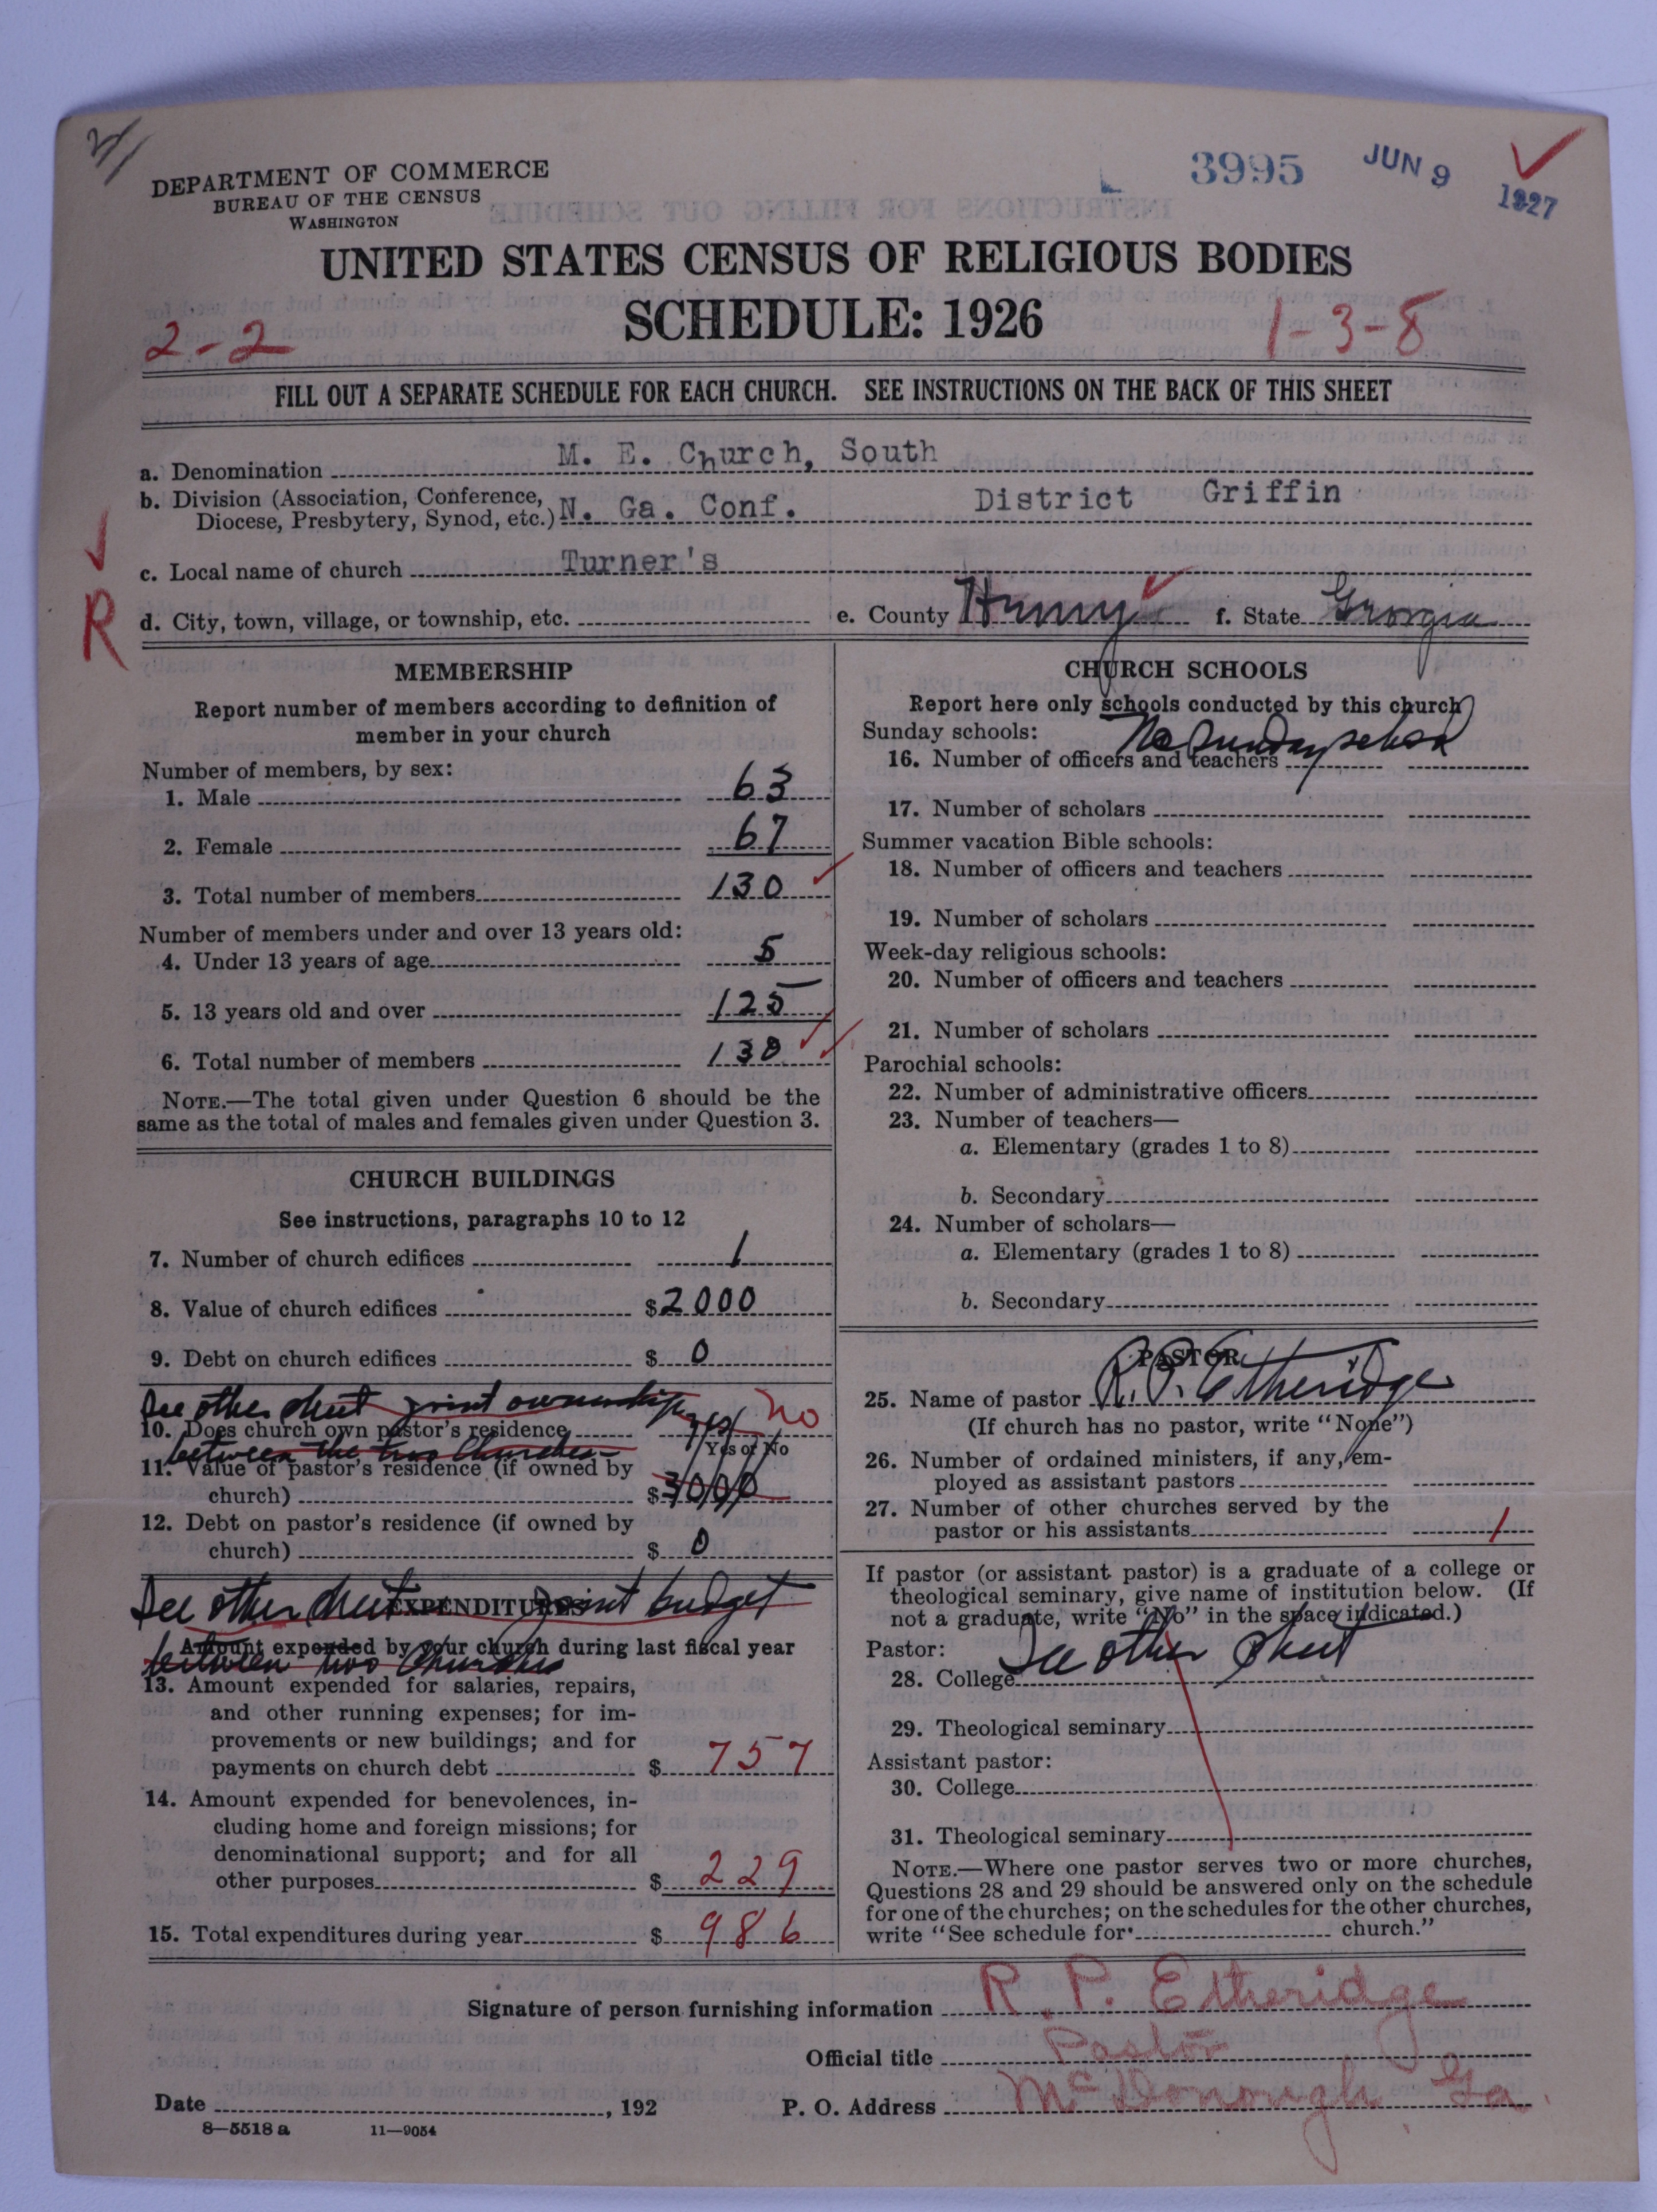 DEPARTMENT OF COMMERCE
BUREAU OF THE CENSUS
WASHINGTON
3995
JUN 9 1927
UNITED STATES CENSUS OF RELIGIOUS BODIES
SCHEDULE: 1926
2-2
1-3-8
FILL OUT A SEPARATE SCHEDULE FOR EACH CHURCH. SEE INSTRUCTIONS ON THE BACK OF THIS SHEET
a. Denomination M. E. Church, South
b. Division (Association, Conference, Diocese, Presbytery, Synod, etc.) N. Ga. Conf. District Griffin
c. Local name of church Turner's
R
d. City, town, village, or township, etc. e. County Henry f. State Georgia
MEMBERSHIP
Report number of members according to definition of
member in your church
Number of members, by sex:
1. Male 63
2. Female 67
3. Total number of members 130
Number of members under and over 13 years old:
4. Under 13 years of age 5
5. 13 years old and over 125
6. Total number of members 130
NOTE.—The total given under Question 6 should be the
same as the total of males and females given under Question 3.
CHURCH BUILDINGS
See instructions, paragraphs 10 to 12
7. Number of church edifices 1
8. Value of church edifices $2000
9. Debt on church edifices $ 0
See other sheet joint ownership
10. Does church own pastor's residence yes no
Yes or No
between the two Churches
11. Value of pastor's residence (if owned by
church) $3000
12. Debt on pastor's residence (if owned by
church) $ 0
See other sheet joint budget
EXPENDITURES
Amount expended by your church during last fiscal year
between two Churches
13. Amount expended for salaries, repairs,
and other running expenses; for im-
provements or new buildings; and for
payments on church debt $ 757
14. Amount expended for benevolences, in-
cluding home and foreign missions; for
denominational support; and for all
other purposes $ 229
15. Total expenditures during year $ 986
CHURCH SCHOOLS
Report here only schools conducted by this church
Sunday schools: No Sunday school
16. Number of officers and teachers
17. Number of scholars
Summer vacation Bible schools:
18. Number of officers and teachers
19. Number of scholars
Week-day religious schools:
20. Number of officers and teachers
21. Number of scholars
Parochial schools:
22. Number of administrative officers
23. Number of teachers—
a. Elementary (grades 1 to 8)
b. Secondary
24. Number of scholars—
a. Elementary (grades 1 to 8)
b. Secondary
PASTOR
25. Name of pastor R. P. Etheridge
(If church has no pastor, write "None")
26. Number of ordained ministers, if any, em-
ployed as assistant pastors
27. Number of other churches served by the
pastor or his assistants 1
If pastor (or assistant pastor) is a graduate of a college or
theological seminary, give name of institution below. (If
not a graduate, write "No" in the space indicated.)
Pastor: See other sheet
28. College
29. Theological seminary
Assistant pastor:
30. College
31. Theological seminary
NOTE.—Where one pastor serves two or more churches,
Questions 28 and 29 should be answered only on the schedule
for one of the churches; on the schedules for the other churches,
write "See schedule for church."
Signature of person furnishing information R. P. Etheridge
Official title Pastor
Date , 192 P. O. Address McDonough, Ga.
8—5518 a 11—9054